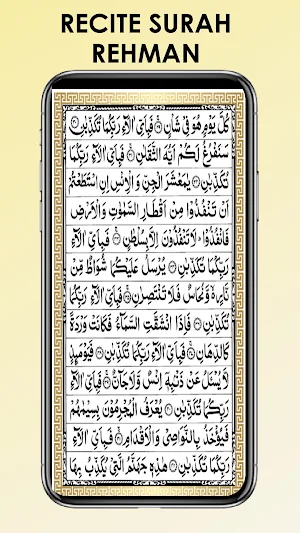 RECITE SURAH
REHMAN
كُلَّ يَوْمٍ هُوَ فِيْ شَاْنٍ ۚ فَبِاَيِّ اٰلَآءِ رَبِّكُمَا تُكَذِّبٰنِ
سَنَفْرُغُ لَكُمْ اَيُّهَ الثَّقَلٰنِ ۚ فَبِاَيِّ اٰلَآءِ رَبِّكُمَا
تُكَذِّبٰنِ يٰمَعْشَرَ الْجِنِّ وَ الْاِنْسِ اِنِ اسْتَطَعْتُمْ
اَنْ تَنْفُذُوْا مِنْ اَقْطَارِ السَّمٰوٰتِ وَ الْاَرْضِ
فَانْفُذُوْا لَا تَنْفُذُوْنَ اِلَّا بِسُلْطٰنٍ ۚ فَبِاَيِّ اٰلَآءِ
رَبِّكُمَا تُكَذِّبٰنِ يُرْسَلُ عَلَيْكُمَا شُوَاظٌ مِّنْ
نَّارٍ وَّ نُحَاسٌ فَلَا تَنْتَصِرٰنِ ۚ فَبِاَيِّ اٰلَآءِ رَبِّكُمَا
تُكَذِّبٰنِ فَاِذَا انْشَقَّتِ السَّمَآءُ فَكَانَتْ وَرْدَةً
كَالدِّهَانِ ۚ فَبِاَيِّ اٰلَآءِ رَبِّكُمَا تُكَذِّبٰنِ فَيَوْمَئِذٍ
لَّا يُسْئَلُ عَنْ ذَنْۢبِهٖۤ اِنْسٌ وَّ لَا جَآنٌّ ۚ فَبِاَيِّ اٰلَآءِ
رَبِّكُمَا تُكَذِّبٰنِ يُعْرَفُ الْمُجْرِمُوْنَ بِسِيْمٰهُمْ
فَيُؤْخَذُ بِالنَّوَاصِيْ وَ الْاَقْدَامِ ۚ فَبِاَيِّ اٰلَآءِ
رَبِّكُمَا تُكَذِّبٰنِ هٰذِهٖ جَهَنَّمُ الَّتِيْ يُكَذِّبُ بِهَا